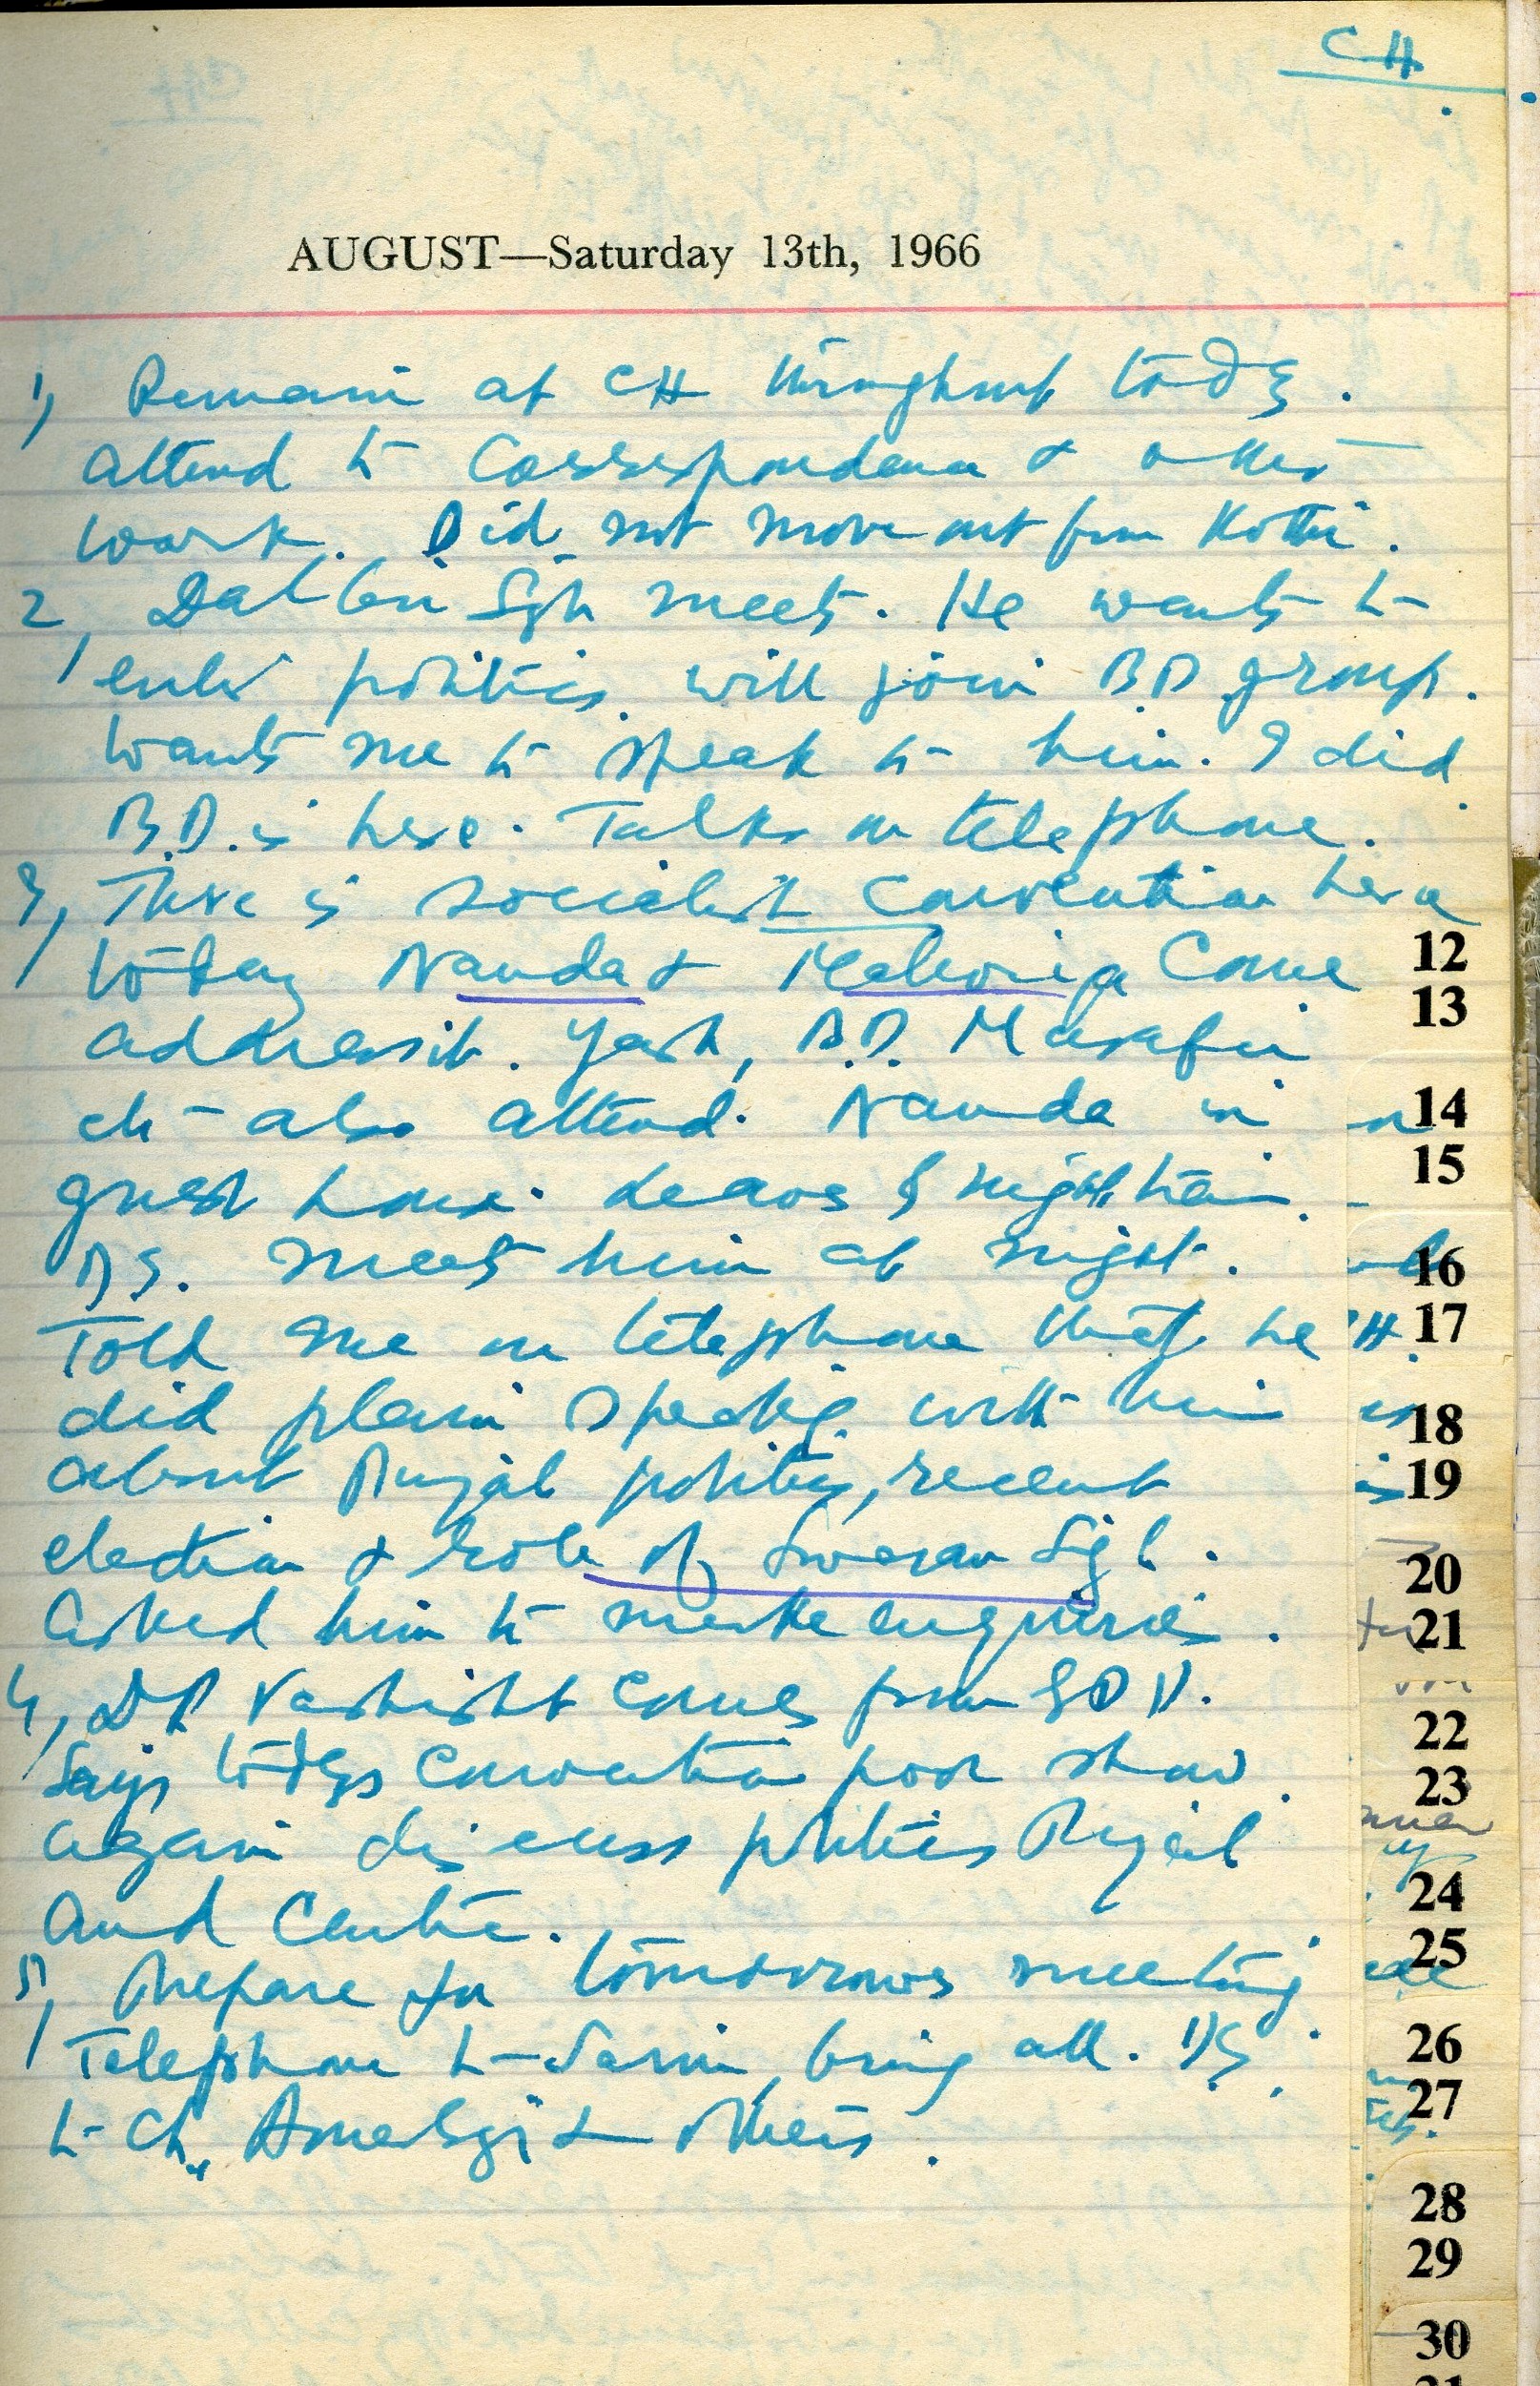 CH.
AUGUST—Saturday 13th, 1966
1, Remain at CH throughout today.
attend to Correspondence & other
work. Did not move out from Kothi.
2, Dalbir Sgh meets. He wants to
enter politics. will join BD group.
Wants me to speak to him. I did.
B.D. is here. Talks on telephone.
3, There is socialist Convention here
today Nanda & Malaviya Come
address it. Yash, B.D. Musafir
etc - also attend. Nanda in
guest house. leaves by night train.
DS. meets him at night.
Told me on telephone that he
did plain speakg. with him
about Punjab politics, recent
election & role of Swaran Sgh.
Asked him to make enquiries.
4, DR Vashisht comes from
Says todays Convention poor show.
Again discuss politics Punjab
and Centre.
5, Prepare for tomorrows meeting.
Telephone to Sarin, bring all. DS.
to Ch. & others.
12
13
14
15
16
17
18
19
20
21
22
23
24
25
26
27
28
29
30
31